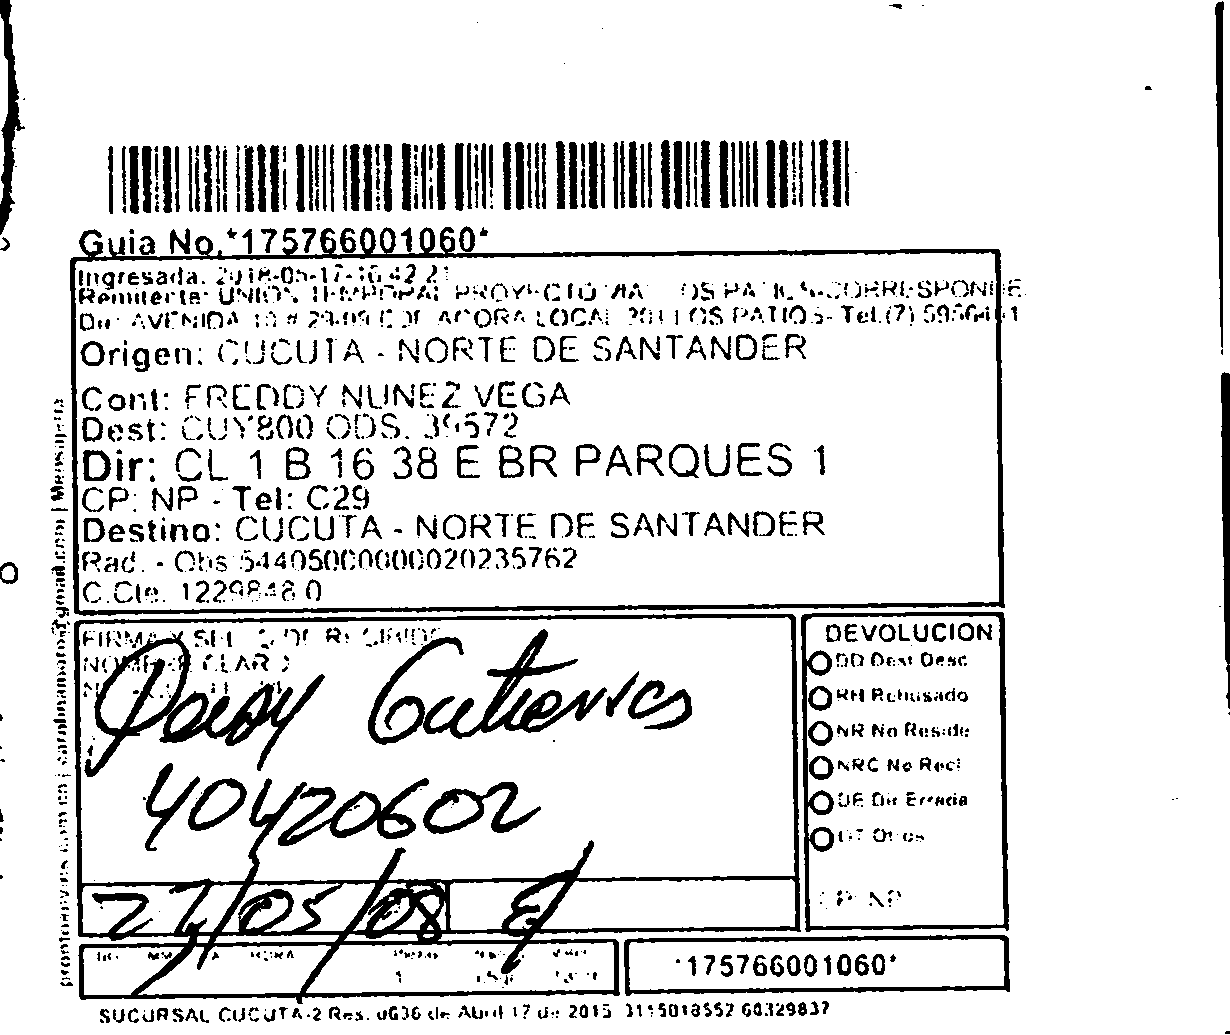 Guia No.*175766001060*
Ingresada. 2018-05-17-16 42 21
Remitente: UNION TEMPORAL PROYECTO VIA LOS PATIOS-CORRESPONDE
Dir: AVENIDA 10 # 29-09 LOCAL 201 LOS PATIOS- Tel.(7)
Origen: CUCUTA - NORTE DE SANTANDER
Cont: FREDDY NUNEZ VEGA
Dest: CUY800 ODS. 39572
Dir: CL 1 B 16 38 E BR PARQUES 1
CP: NP - Tel: C29
Destino: CUCUTA - NORTE DE SANTANDER
Rad. - Obs
C.Cte. 1229848 0
FIRMA Y SELLO DE RECIBIDO
NOMBRE CLARO
Gutierres
40420602
27/05/08
DEVOLUCION
DD Dest Desc
RH Rehusado
NR No Reside
NRC No Recl
DE Dir Errada
OT Otros
CP: NP
HORA
*175766001060*
SUCURSAL CUCUTA-2 Res. de Abril 17 de 3115018552 60329837